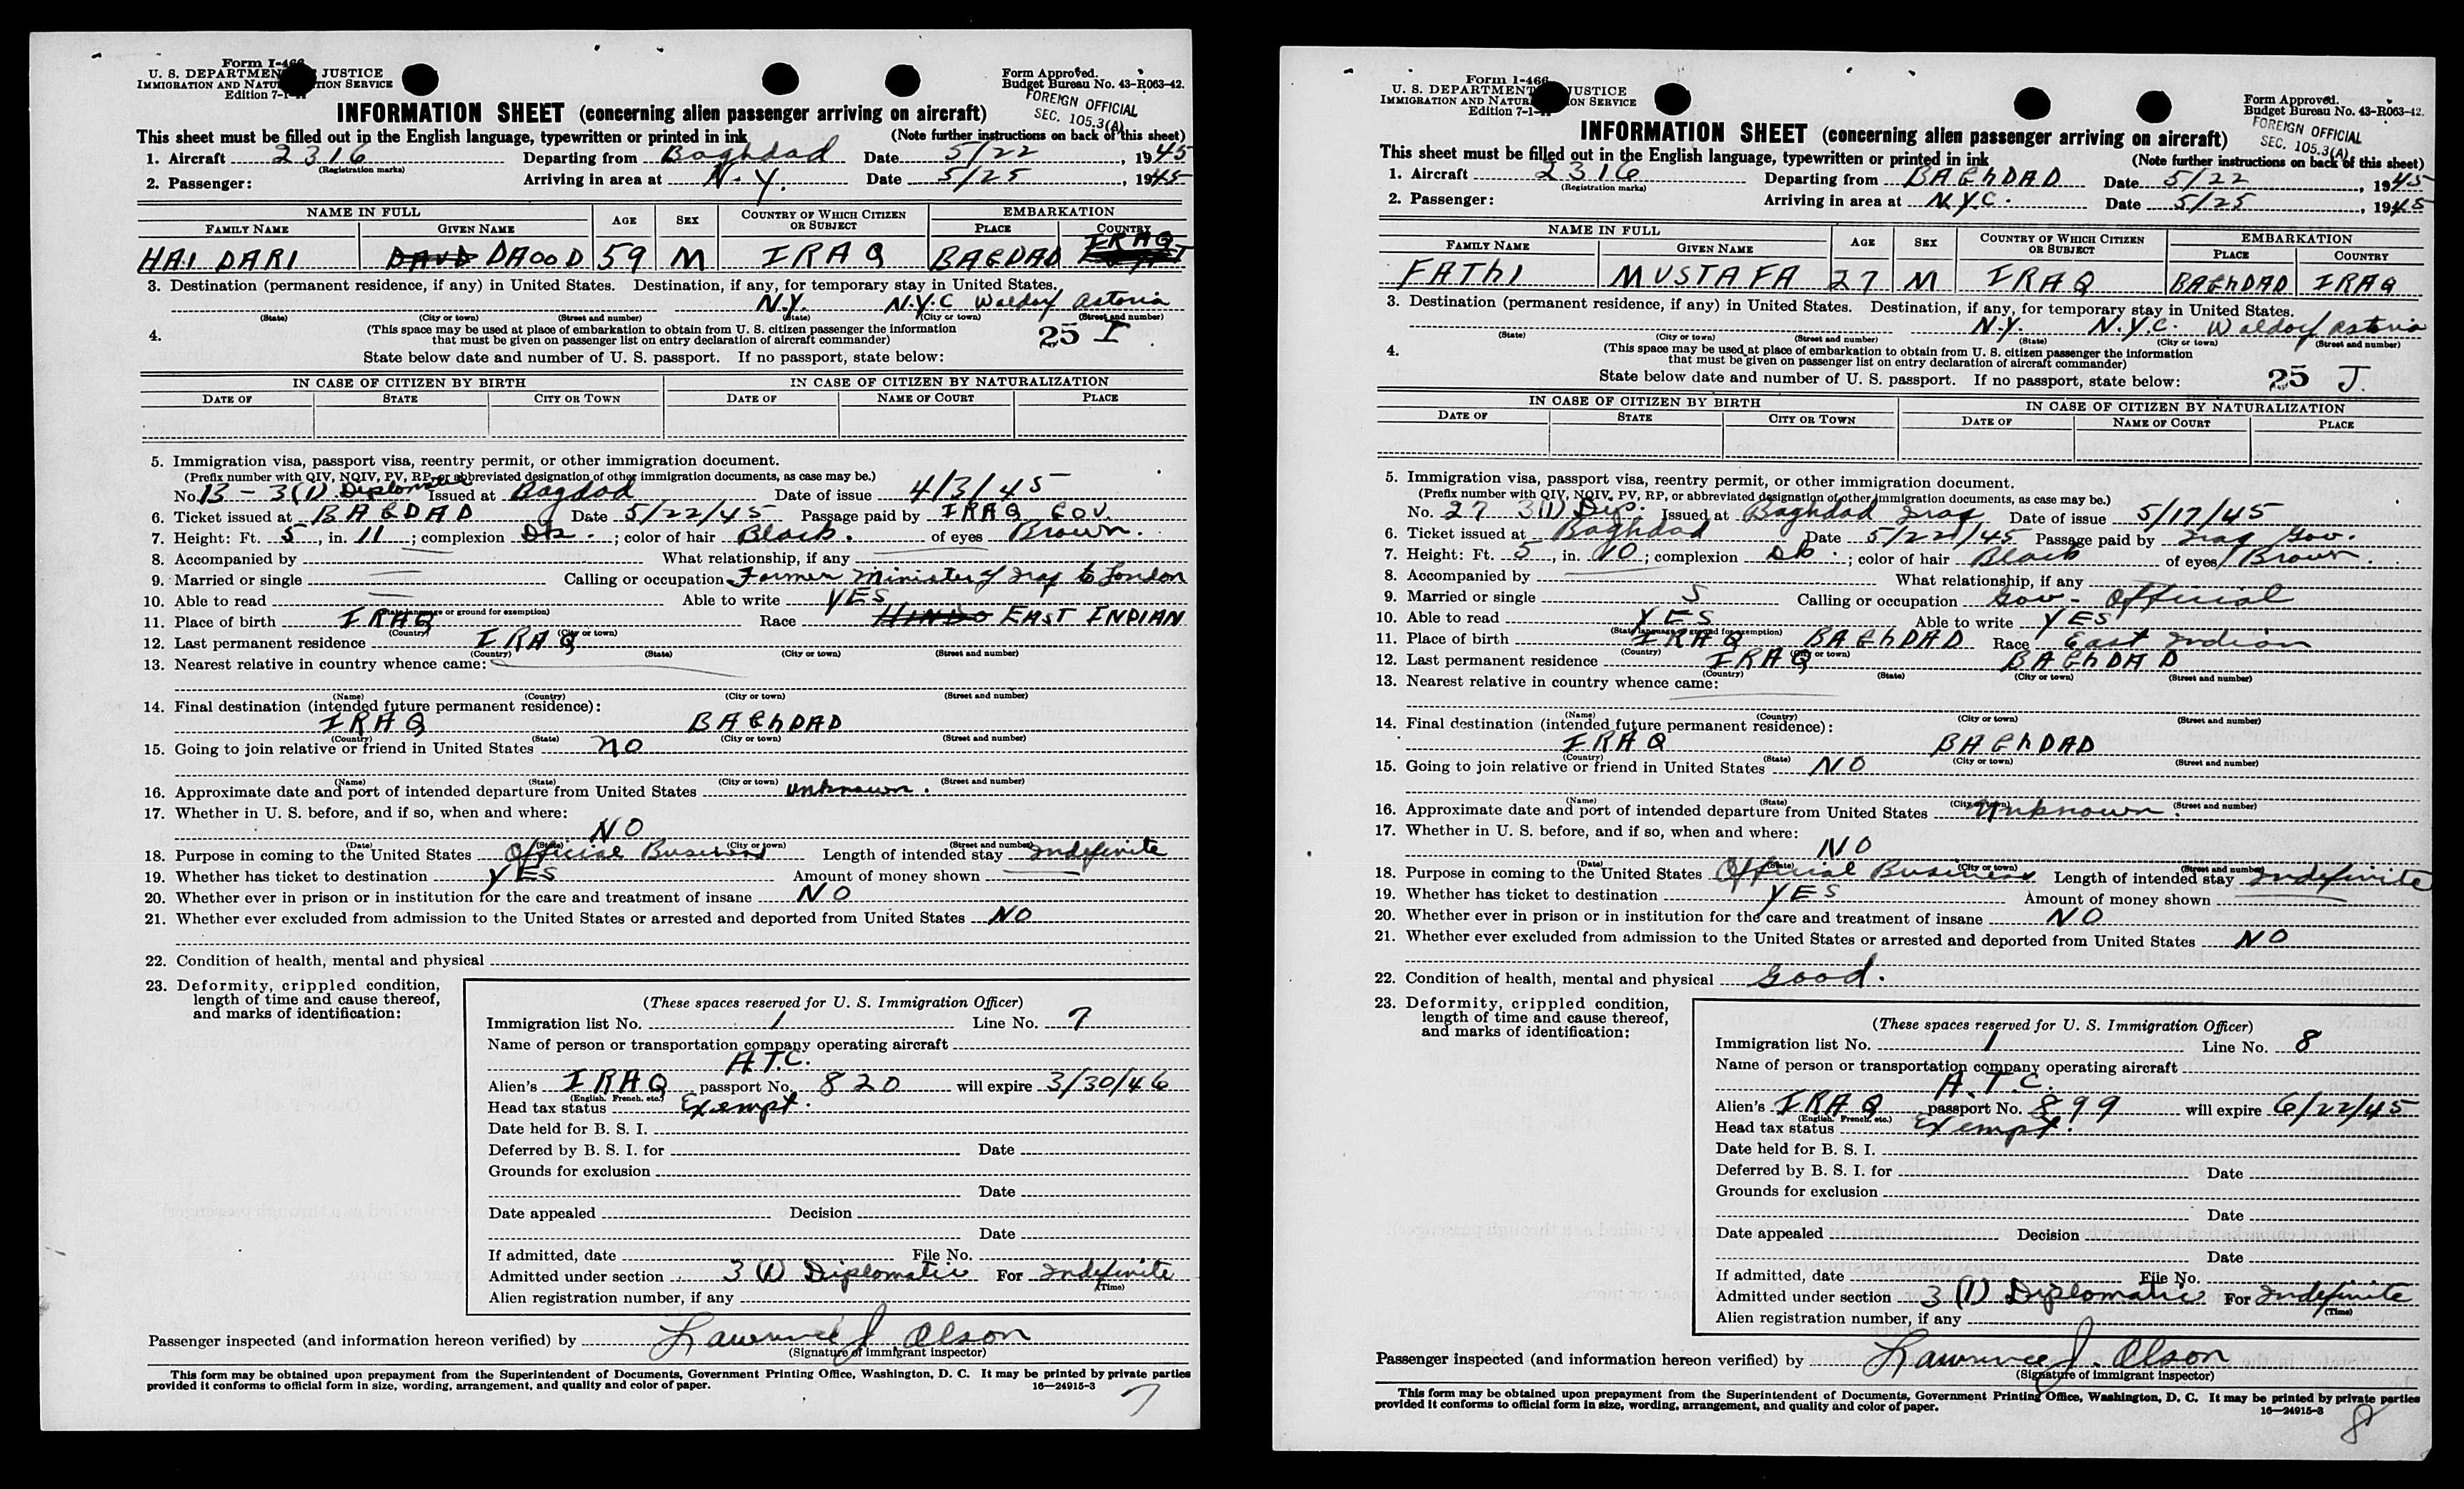 Form I-466
U. S. DEPARTMENT JUSTICE
IMMIGRATION AND NATURALIZATION SERVICE
Edition 7-1-
Form Approved.
Budget Bureau No. 43-R063-42.
FOREIGN OFFICIAL
SEC. 105.3(A)
INFORMATION SHEET (concerning alien passenger arriving on aircraft)
This sheet must be filled out in the English language, typewritten or printed in ink (Note further instructions on back of this sheet)
1. Aircraft 2316 Departing from Baghdad Date 5/22, 1945
(Registration marks)
2. Passenger: Arriving in area at N.Y. Date 5/25, 1945
NAME IN FULL AGE SEX COUNTRY OF WHICH CITIZEN OR SUBJECT EMBARKATION
FAMILY NAME GIVEN NAME PLACE COUNTRY
HAIDARI DAUD DAOOD 59 M IRAQ BAGDAD IRAQ
3. Destination (permanent residence, if any) in United States. Destination, if any, for temporary stay in United States.
N.Y. N.Y.C Waldorf Astoria
(State) (City or town) (Street and number) (State) (City or town) (Street and number)
4. (This space may be used at place of embarkation to obtain from U. S. citizen passenger the information
that must be given on passenger list on entry declaration of aircraft commander)
25 I
State below date and number of U. S. passport. If no passport, state below:
IN CASE OF CITIZEN BY BIRTH IN CASE OF CITIZEN BY NATURALIZATION
DATE OF STATE CITY OR TOWN DATE OF NAME OF COURT PLACE
5. Immigration visa, passport visa, reentry permit, or other immigration document.
(Prefix number with QIV, NQIV, PV, RP, or abbreviated designation of other immigration documents, as case may be.)
No. 13 - 3(1) Diplomatic Issued at Bagdad Date of issue 4/3/45
6. Ticket issued at BAGDAD Date 5/22/45 Passage paid by IRAQ GOV.
7. Height: Ft. 5, in. 11; complexion Dk.; color of hair Black. of eyes Brown.
8. Accompanied by What relationship, if any
9. Married or single Calling or occupation Former Minister of Iraq to London
10. Able to read Able to write YES
(State language or ground for exemption)
11. Place of birth IRAQ Race HINDO EAST INDIAN
(Country) (City or town)
12. Last permanent residence IRAQ
(Country) (State) (City or town) (Street and number)
13. Nearest relative in country whence came:
(Name) (Country) (City or town) (Street and number)
14. Final destination (intended future permanent residence):
IRAQ BAGhDAD
(Country) (State) (City or town) (Street and number)
15. Going to join relative or friend in United States NO
(Name) (State) (City or town) (Street and number)
16. Approximate date and port of intended departure from United States unknown.
17. Whether in U. S. before, and if so, when and where:
NO
(Date) (State) (City or town) (Street and number)
18. Purpose in coming to the United States Official Business Length of intended stay Indefinite
19. Whether has ticket to destination YES Amount of money shown
20. Whether ever in prison or in institution for the care and treatment of insane NO
21. Whether ever excluded from admission to the United States or arrested and deported from United States NO
22. Condition of health, mental and physical
23. Deformity, crippled condition,
length of time and cause thereof,
and marks of identification:
(These spaces reserved for U. S. Immigration Officer)
Immigration list No. 1 Line No. 7
Name of person or transportation company operating aircraft
A.T.C.
Alien's IRAQ passport No. 820 will expire 3/30/46
(English, French, etc.)
Head tax status Exempt.
Date held for B. S. I.
Deferred by B. S. I. for Date
Grounds for exclusion
Date
Date appealed Decision
Date
If admitted, date File No.
Admitted under section 3 (1) Diplomatic For Indefinite
(Time)
Alien registration number, if any
Passenger inspected (and information hereon verified) by Lawrence J. Olson
(Signature of immigrant inspector)
This form may be obtained upon prepayment from the Superintendent of Documents, Government Printing Office, Washington, D. C. It may be printed by private parties
provided it conforms to official form in size, wording, arrangement, and quality and color of paper. 16—24915-3
7
Form I-466
U. S. DEPARTMENT JUSTICE
IMMIGRATION AND NATURALIZATION SERVICE
Edition 7-1-
Form Approved.
Budget Bureau No. 43-R063-42.
FOREIGN OFFICIAL
SEC. 105.3(A)
INFORMATION SHEET (concerning alien passenger arriving on aircraft)
This sheet must be filled out in the English language, typewritten or printed in ink (Note further instructions on back of this sheet)
1. Aircraft 2316 Departing from BAGhDAD Date 5/22, 1945
(Registration marks)
2. Passenger: Arriving in area at N.Y.C. Date 5/25, 1945
NAME IN FULL AGE SEX COUNTRY OF WHICH CITIZEN OR SUBJECT EMBARKATION
FAMILY NAME GIVEN NAME PLACE COUNTRY
FATHI MUSTAFA 27 M IRAQ BAGhDAD IRAQ
3. Destination (permanent residence, if any) in United States. Destination, if any, for temporary stay in United States.
N.Y. N.Y.C. Waldorf Astoria
(State) (City or town) (Street and number) (State) (City or town) (Street and number)
4. (This space may be used at place of embarkation to obtain from U. S. citizen passenger the information
that must be given on passenger list on entry declaration of aircraft commander)
State below date and number of U. S. passport. If no passport, state below: 25 J.
IN CASE OF CITIZEN BY BIRTH IN CASE OF CITIZEN BY NATURALIZATION
DATE OF STATE CITY OR TOWN DATE OF NAME OF COURT PLACE
5. Immigration visa, passport visa, reentry permit, or other immigration document.
(Prefix number with QIV, NQIV, PV, RP, or abbreviated designation of other immigration documents, as case may be.)
No. 27 3(1) Dip. Issued at Baghdad Iraq Date of issue 5/17/45
6. Ticket issued at Baghdad Date 5/22/45 Passage paid by Iraq Gov.
7. Height: Ft. 5, in. 10; complexion Dk.; color of hair Black of eyes Brown.
8. Accompanied by What relationship, if any
9. Married or single S Calling or occupation Gov- Official
10. Able to read YES Able to write YES
(State language or ground for exemption)
11. Place of birth IRAQ BAGhDAD Race East Indian
(Country) (City or town)
12. Last permanent residence IRAQ BAGhDAD
(Country) (State) (City or town) (Street and number)
13. Nearest relative in country whence came:
(Name) (Country) (City or town) (Street and number)
14. Final destination (intended future permanent residence):
IRAQ BAGhDAD
(Country) (State) (City or town) (Street and number)
15. Going to join relative or friend in United States NO
(Name) (State) (City or town) (Street and number)
16. Approximate date and port of intended departure from United States Unknown.
17. Whether in U. S. before, and if so, when and where:
NO
(Date) (State) (City or town) (Street and number)
18. Purpose in coming to the United States Official Business Length of intended stay Indefinite
19. Whether has ticket to destination YES Amount of money shown
20. Whether ever in prison or in institution for the care and treatment of insane NO
21. Whether ever excluded from admission to the United States or arrested and deported from United States NO
22. Condition of health, mental and physical Good.
23. Deformity, crippled condition,
length of time and cause thereof,
and marks of identification:
(These spaces reserved for U. S. Immigration Officer)
Immigration list No. 1 Line No. 8
Name of person or transportation company operating aircraft
A.T.C.
Alien's IRAQ passport No. 899 will expire 6/22/45
(English, French, etc.)
Head tax status Exempt.
Date held for B. S. I.
Deferred by B. S. I. for Date
Grounds for exclusion
Date
Date appealed Decision
Date
If admitted, date File No.
Admitted under section 3 (1) Diplomatic For Indefinite
(Time)
Alien registration number, if any
Passenger inspected (and information hereon verified) by Lawrence J. Olson
(Signature of immigrant inspector)
This form may be obtained upon prepayment from the Superintendent of Documents, Government Printing Office, Washington, D. C. It may be printed by private parties
provided it conforms to official form in size, wording, arrangement, and quality and color of paper. 16—24915-3
8